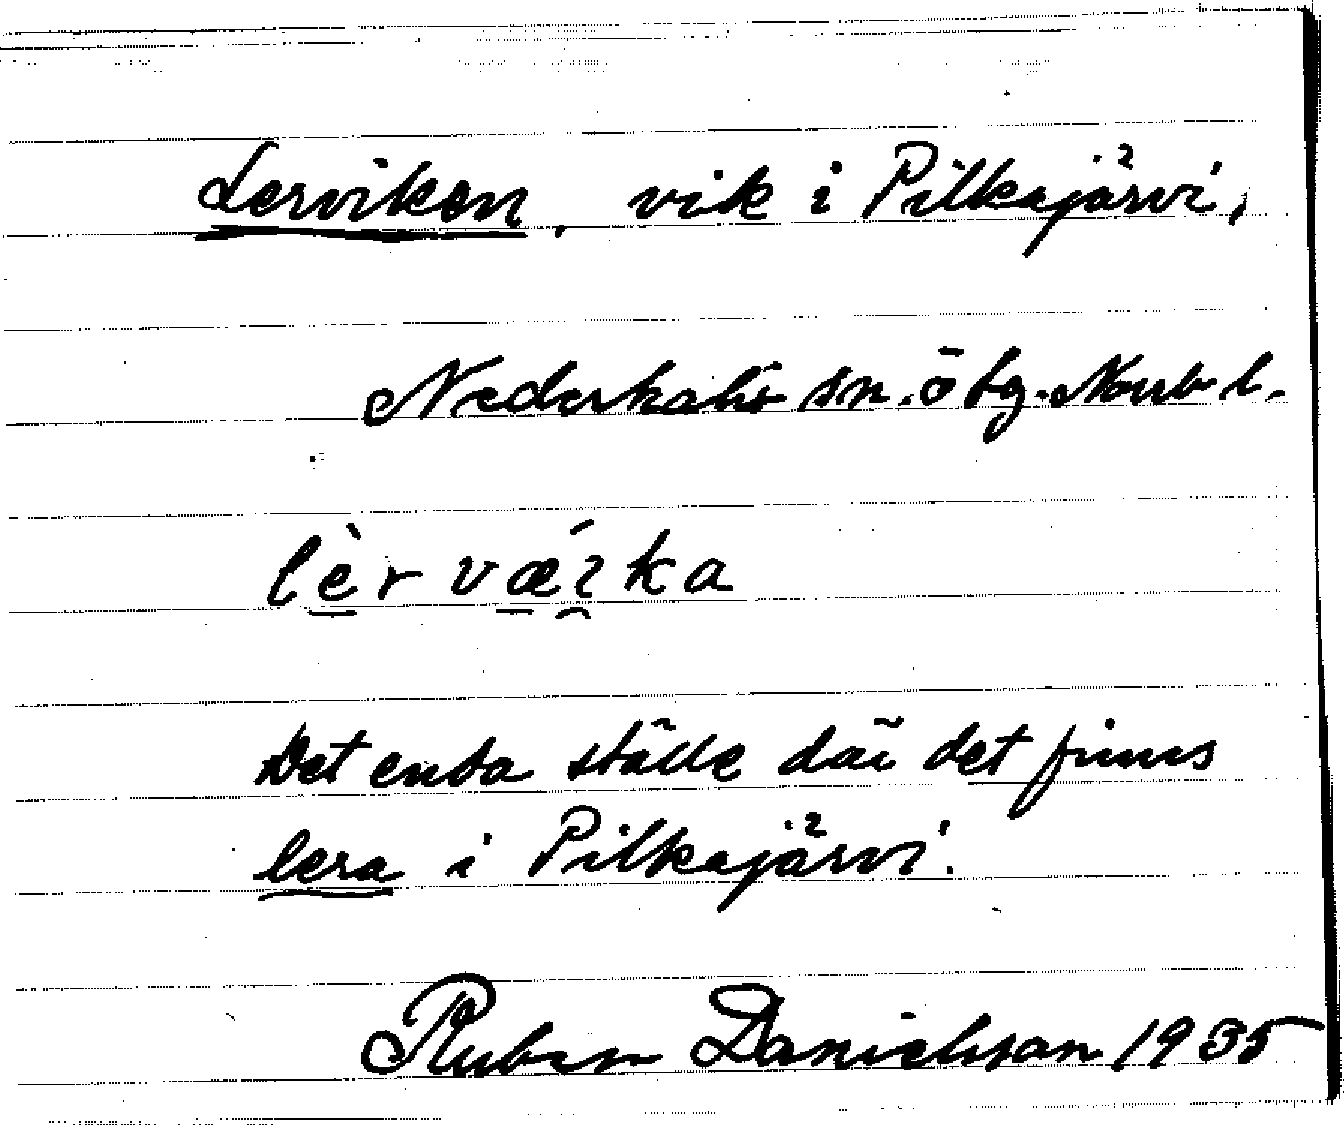 Lerviken, vik i Pilkajärvi,
Nederkalix sn. ö bg. Norrb l.
lèr vǽ̱ɩ̯ka
Det enda ställe där det finns
lera i Pilkajärvi.
Ruben Danielsson 1935